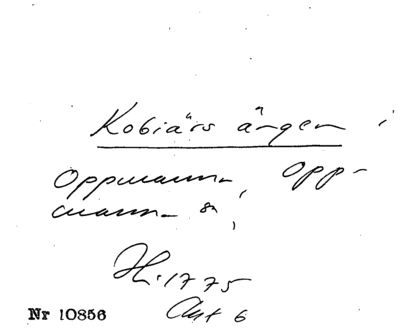 Kobiärs ängen i
Oppmanna, Opp-
manna sn,
H. 1775
Akt 6
Nr 10856